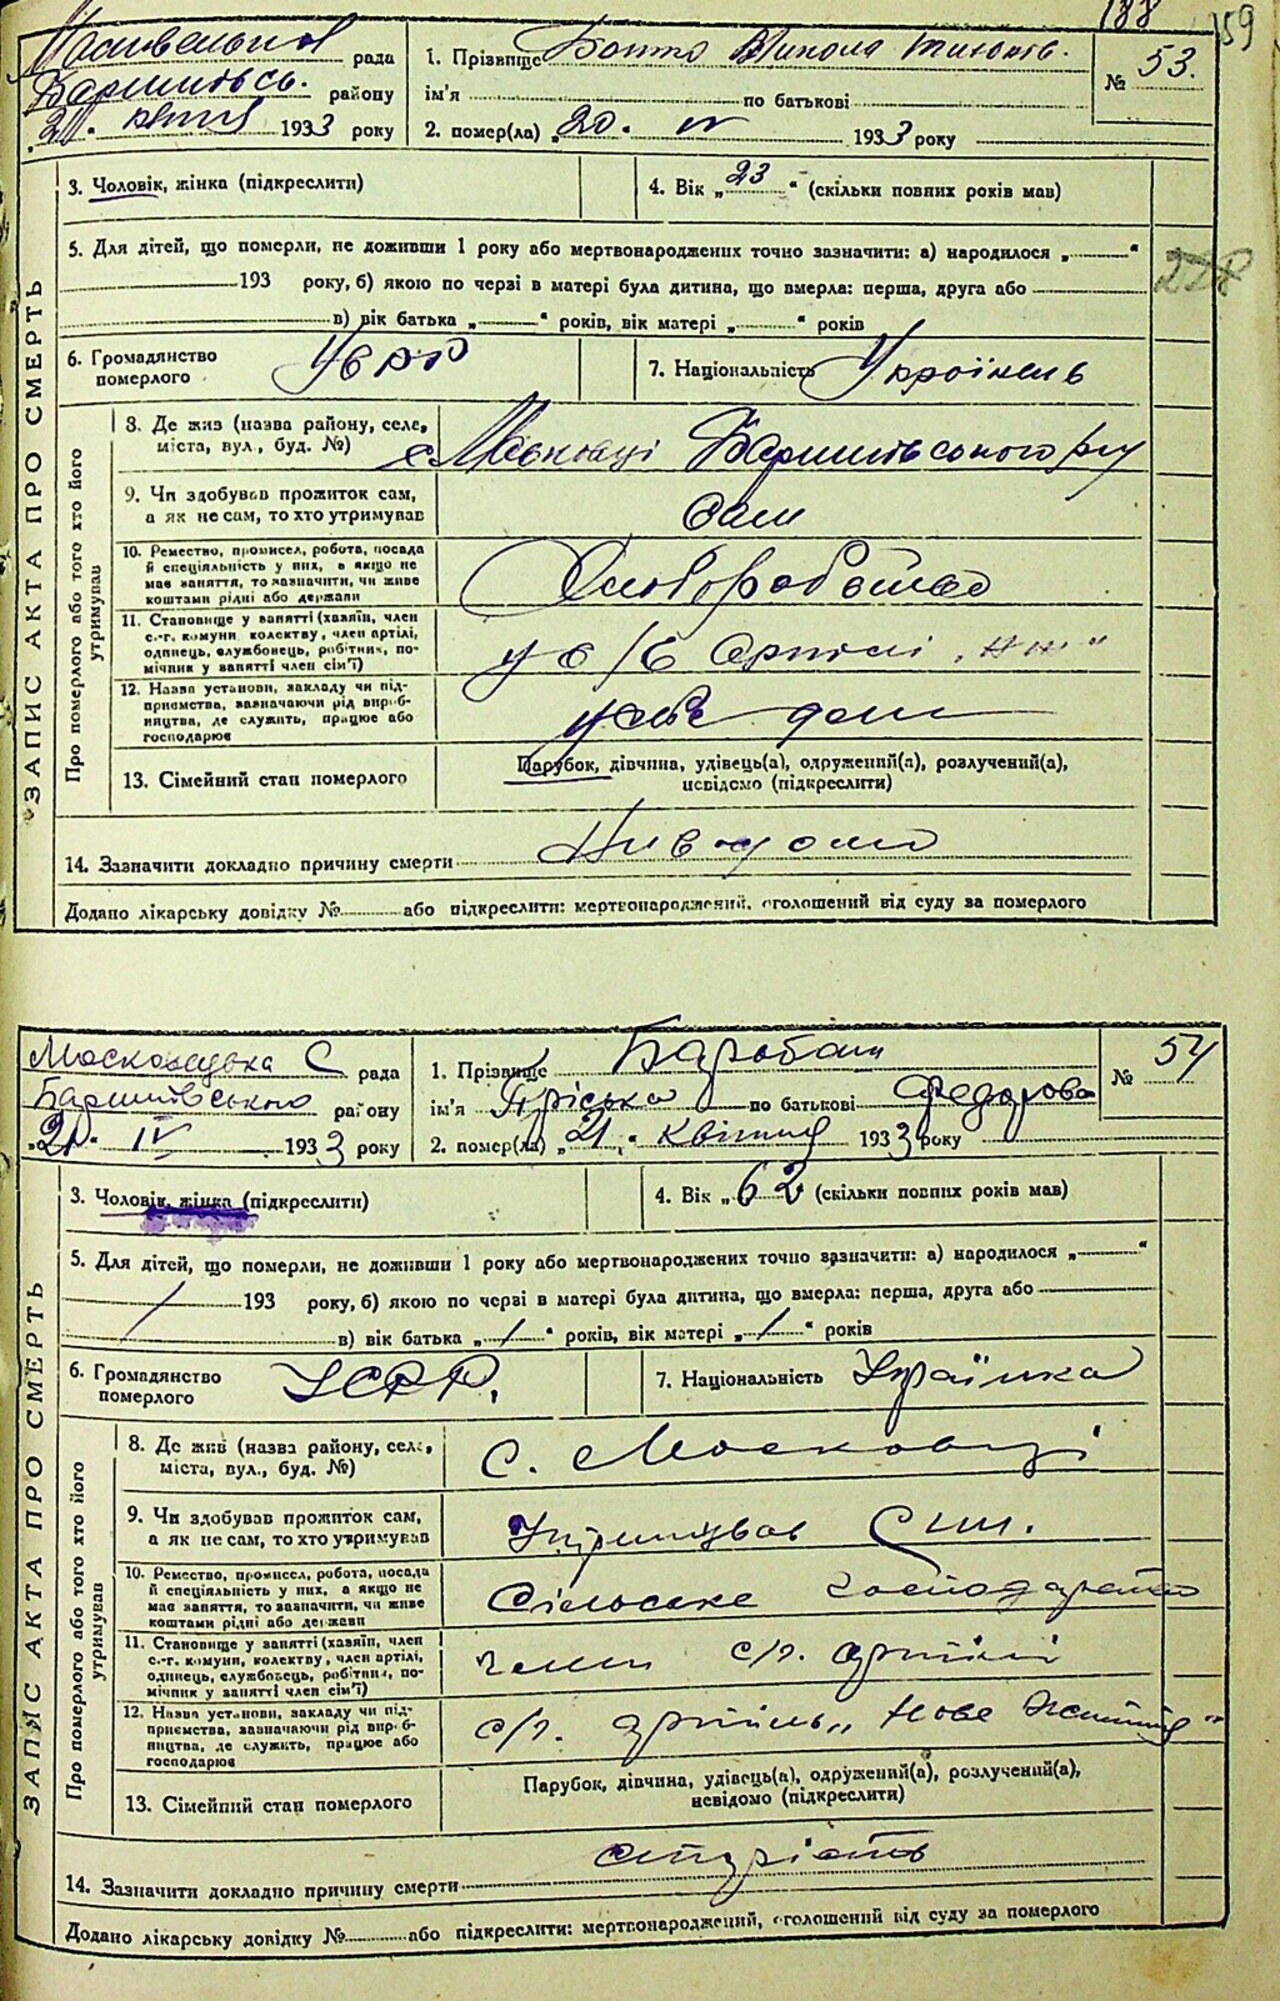 188 159
рада
Баришівсь. району
21. квітня 1933 року
1. Прізвище Микола Тихонів.
ім'я по батькові
2. помер(ла) „20. IV 1933 року
№ 53.
ЗАПИС АКТА ПРО СМЕРТЬ
3. Чоловік, жінка (підкреслити)
4. Вік „23“ (скільки повних років мав)
5. Для дітей, що померли, не доживши 1 року або мертвонароджених точно зазначити: а) народилося „ “
193 року, б) якою по черзі в матері була дитина, що вмерла: перша, друга або
в) вік батька „ “ років, вік матері „ “ років
228
6. Громадянство
померлого
УСРР
7. Національність Українець
Про померлого або того хто його
утримував
8. Де жив (назва району, селе,
міста, вул., буд. №)
с Московці Баришівського р-ну
9. Чи здобував прожиток сам,
а як не сам, то хто утримував
Сам
10. Ремество, промисел, робота, посада
й спеціяльність у них, а якщо не
має заняття, то зазначити, чи живе
коштами рідні або держави
Хлiборобство
11. Становище у занятті (хазяїн, член
с.-г. комуни, колективу, член артілі,
одинець, службовець, робітник, по-
мічник у занятті член сім'ї)
у с/г Артілі
12. Назва установи, закладу чи під-
приємства, зазначаючи рід вироб-
ництва, де служить, працює або
господарює
у себе дома
13. Сімейний стан померлого
Парубок, дівчина, удівець(а), одружений(а), розлучений(а),
невідомо (підкреслити)
14. Зазначити докладно причину смерти Нивидомо
Додано лікарську довідку № або підкреслити: мертвонароджений, оголошений від суду за померлого
Московецька С рада
Баришівського району
„21“ IV 1933 року
1. Прізвище Барабаш
ім'я Пріська по батькові Федорова
2. помер(ла) „21“ квітня 1933 року
№ 54
ЗАПИС АКТА ПРО СМЕРТЬ
3. Чоловік, жінка (підкреслити)
4. Вік „62 (скільки повних років мав)
5. Для дітей, що померли, не доживши 1 року або мертвонароджених точно зазначити: а) народилося „ “
193 року, б) якою по черзі в матері була дитина, що вмерла: перша, друга або
в) вік батька „/“ років, вік матері „/“ років
6. Громадянство
померлого
УСРР.
7. Національність Українка
Про померлого або того хто його
утримував
8. Де жив (назва району, селе,
міста, вул., буд. №)
с. Московці
9. Чи здобував прожиток сам,
а як не сам, то хто утримував
Утримував Син.
10. Ремество, промисел, робота, посада
й спеціяльність у них, а якщо не
має заняття, то зазначити, чи живе
коштами рідні або держави
Сільське господарство
11. Становище у занятті (хазяїн, член
с.-г. комуни, колективу, член артілі,
одинець, службовець, робітник, по-
мічник у занятті член сім'ї)
член с/г. артілі
12. Назва установи, закладу чи під-
приємства, зазначаючи рід вироб-
ництва, де служить, працює або
господарює
с/г. артіль „Нове Життя“
13. Сімейний стан померлого
Парубок, дівчина, удівець(а), одружений(а), розлучений(а),
невідомо (підкреслити)
14. Зазначити докладно причину смерти старість
Додано лікарську довідку № або підкреслити: мертвонароджений, оголошений від суду за померлого